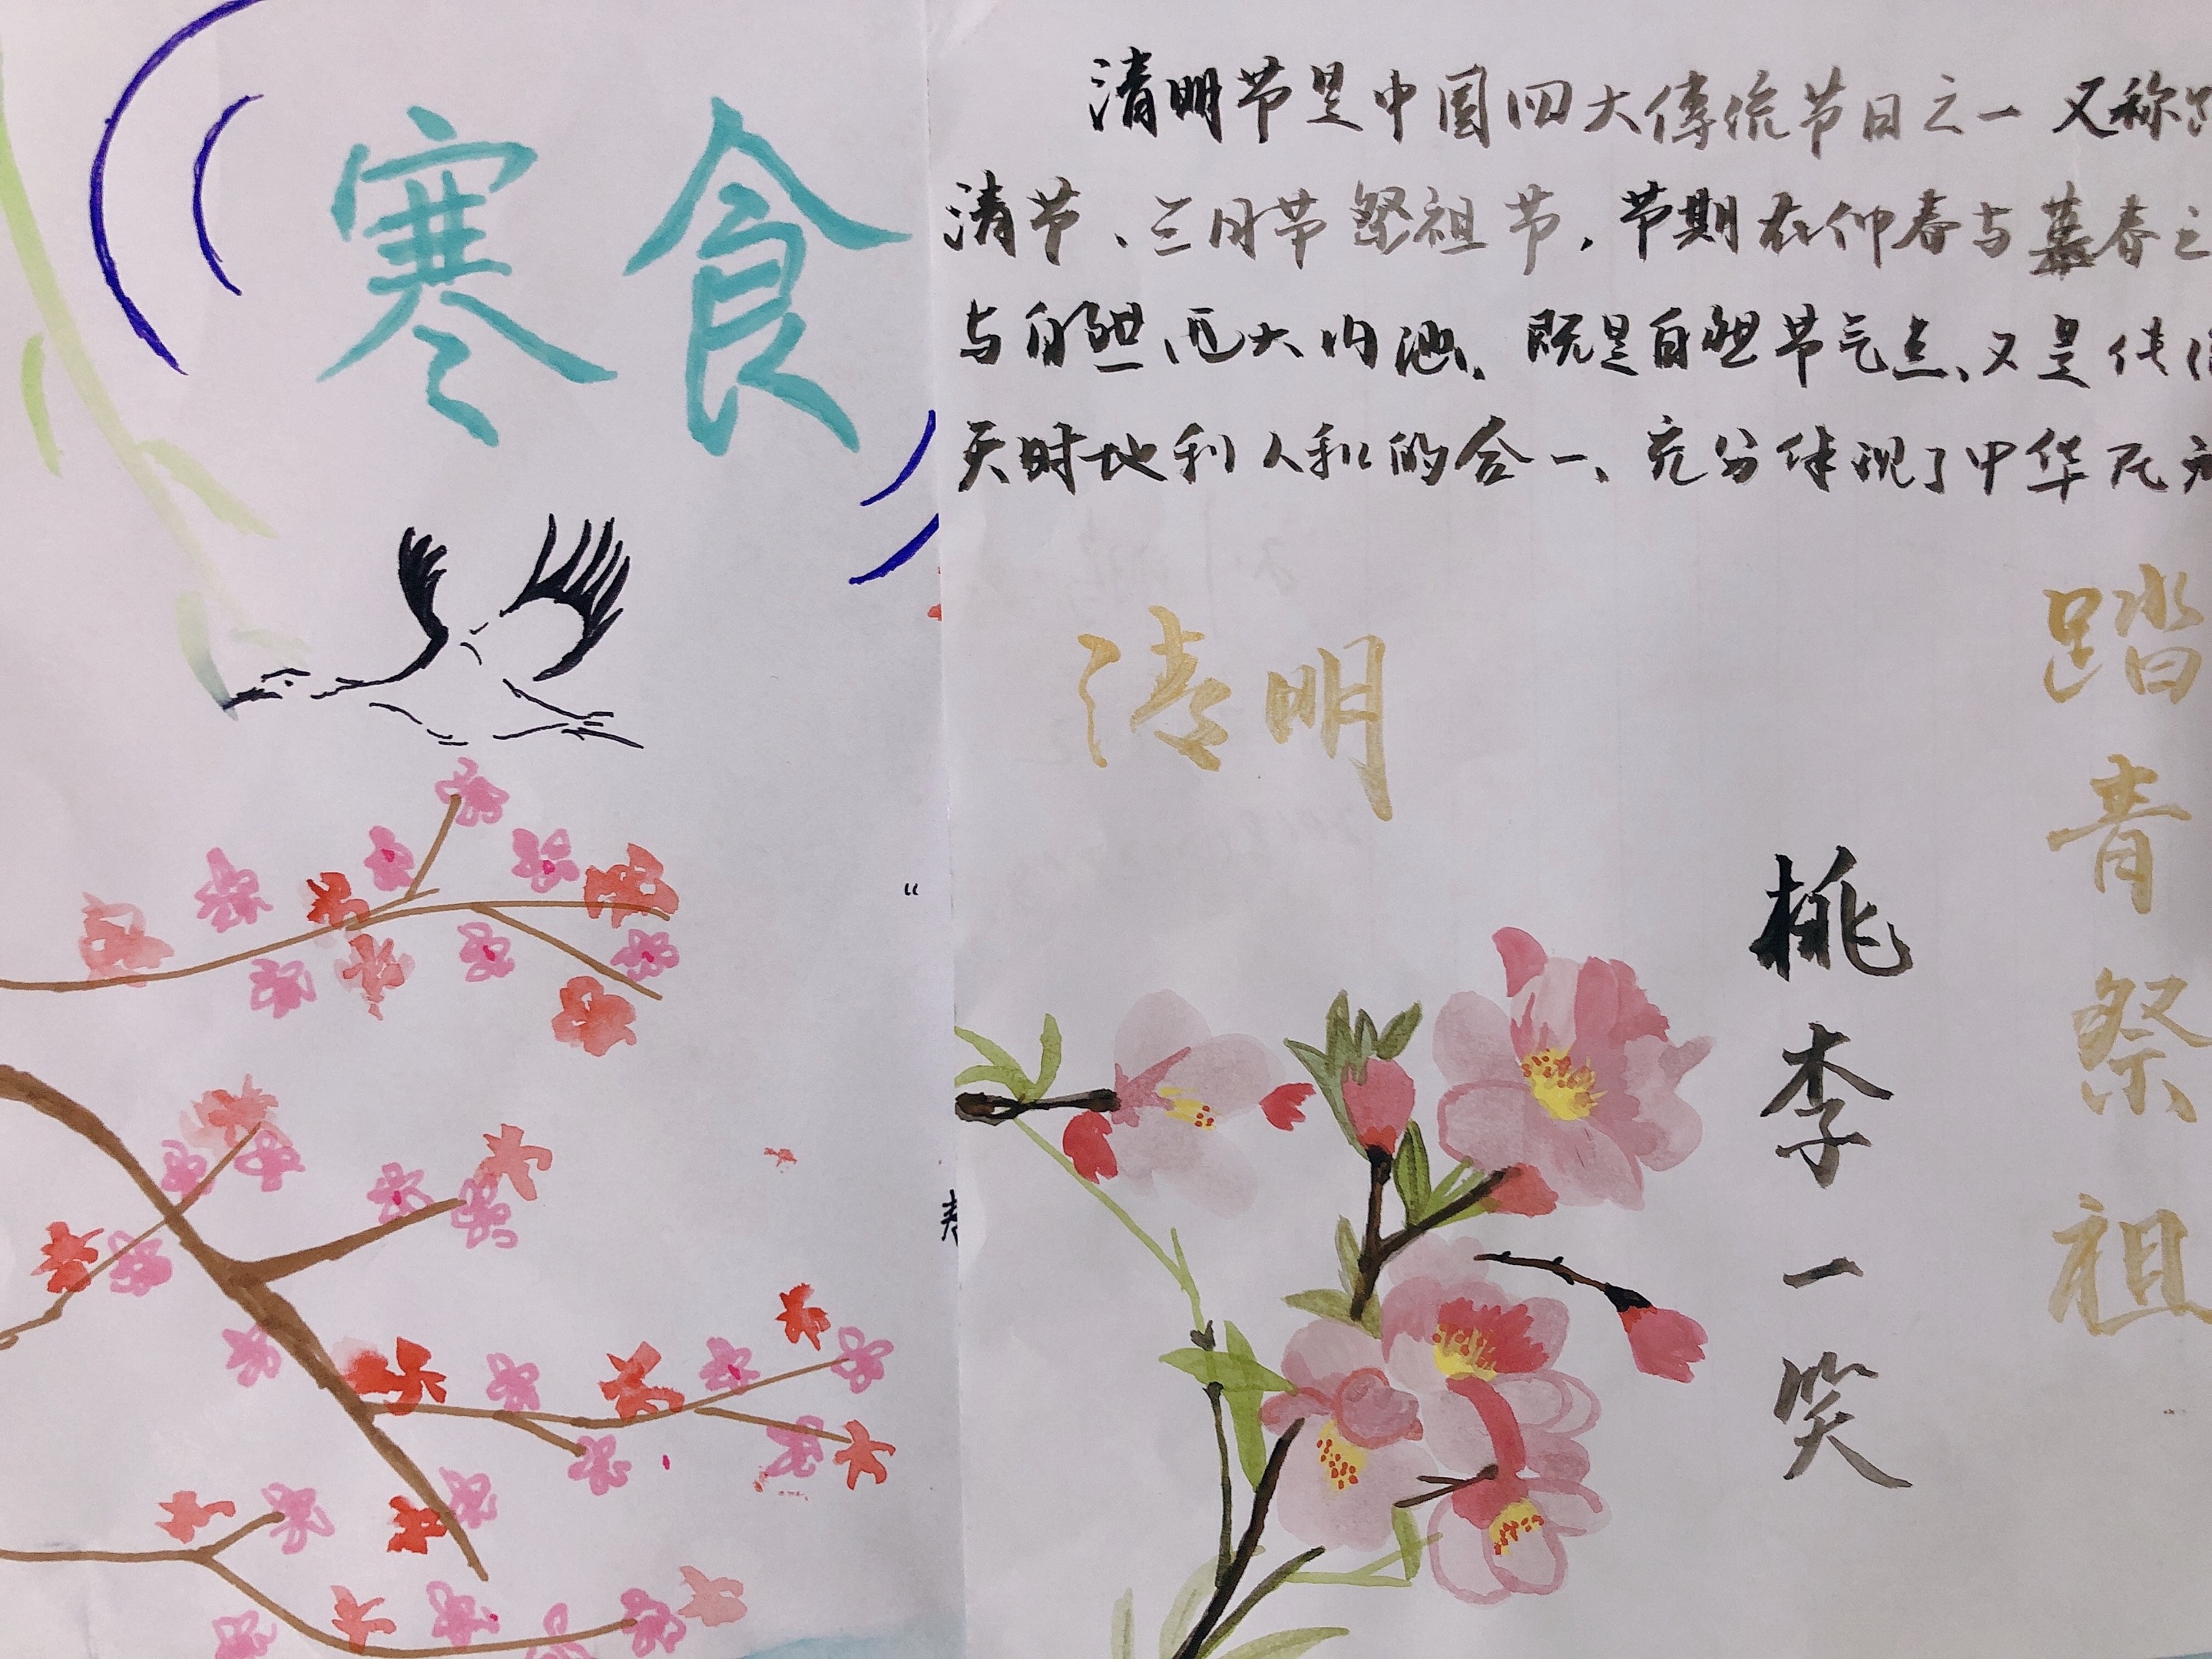 寒食
清明节是中国四大傳统节日之一 又称
清节、三月节 祭祖节，节期在仲春与暮春之
与自然两大内涵、既是自然节气点、又是传
天时地利人和的合一、充分体现了中华民
清明
踏青祭祖
桃李一笑
“